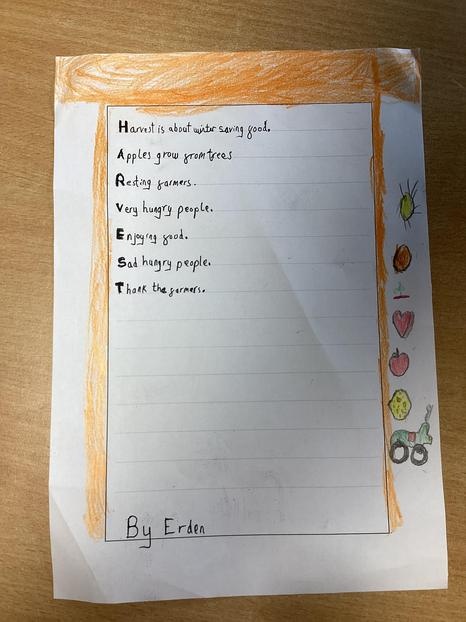 Harvest is about winter saving food.
Apples grow from trees
Resting farmers.
Very hungry people.
Enjoying food.
Sad hungry people.
Thank the farmers.
By Erden